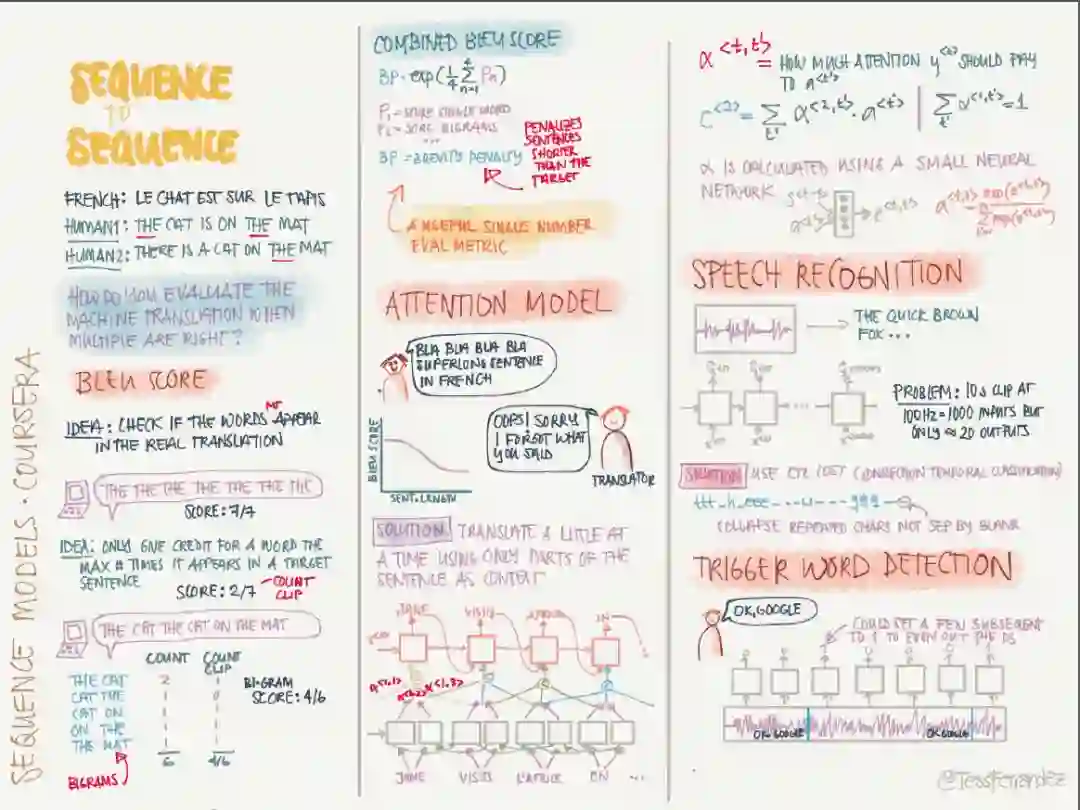 SEQUENCE MODELS · COURSERA
SEQUENCE
TO
SEQUENCE
FRENCH: LE CHAT EST SUR LE TAPIS
HUMAN1: THE CAT IS ON THE MAT
HUMAN2: THERE IS A CAT ON THE MAT
HOW DO YOU EVALUATE THE
MACHINE TRANSLATION WHEN
MULTIPLE ARE RIGHT?
BLEU SCORE
IDEA: CHECK IF THE WORDS APPEAR
IN THE REAL TRANSLATION
THE THE THE THE THE THE THE
SCORE: 7/7
IDEA: ONLY GIVE CREDIT FOR A WORD THE
MAX # TIMES IT APPEARS IN A TARGET
SENTENCE
SCORE: 2/7
COUNT
CLIP
THE CAT THE CAT ON THE MAT
COUNT COUNT
CLIP
THE CAT 2 1
CAT THE 1 0
CAT ON 1 1
ON THE 1 1
THE MAT 1 1
6 4/6
BIGRAM
SCORE: 4/6
BIGRAMS
COMBINED BLEU SCORE
BP · exp(1/4 Σ Pn)
P1 = SCORE SINGLE WORD
P2 = SCORE BIGRAMS
...
BP = BREVITY PENALTY
PENALIZES
SENTENCES
SHORTER
THAN THE
TARGET
A USEFUL SINGLE NUMBER
EVAL METRIC
ATTENTION MODEL
BLA BLA BLA BLA
SUPERLONG SENTENCE
IN FRENCH
OOPS! SORRY
I FORGOT WHAT
YOU SAID
TRANSLATOR
BLEU SCORE
SENT. LENGTH
SOLUTION TRANSLATE A LITTLE AT
A TIME USING ONLY PARTS OF THE
SENTENCE AS CONTEXT
JANE VISITS IN
JANE VISITE L'AFRIQUE EN ...
α<t,t'> = HOW MUCH ATTENTION y<t> SHOULD PAY
TO a<t'>
C<2> = Σt' α<2,t'> · a<t'> | Σt' α<1,t'> = 1
α IS CALCULATED USING A SMALL NEURAL
NETWORK
SPEECH RECOGNITION
THE QUICK BROWN
FOX ...
PROBLEM: 10s CLIP AT
100HZ = 1000 INPUTS BUT
ONLY ≈ 20 OUTPUTS
SOLUTION USE CTC COST (CONNECTION TEMPORAL CLASSIFICATION)
COLLAPSE REPEATED CHARS NOT SEP BY BLANK
TRIGGER WORD DETECTION
OK, GOOGLE
COULD SET A FEW SUBSEQUENT
TO 1 TO EVEN OUT THE 0s
0 0 1 0 0 0 1
OK GOOGLE OK GOOGLE
@TessFerrandez